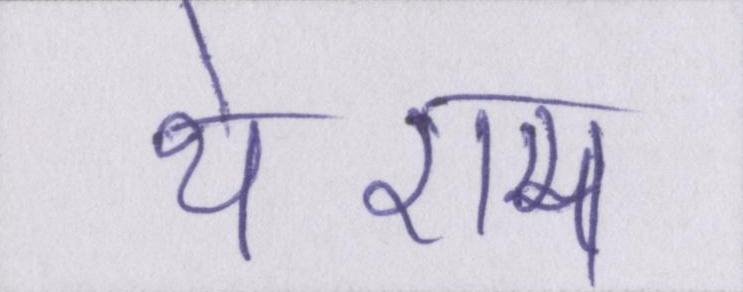 थे राम